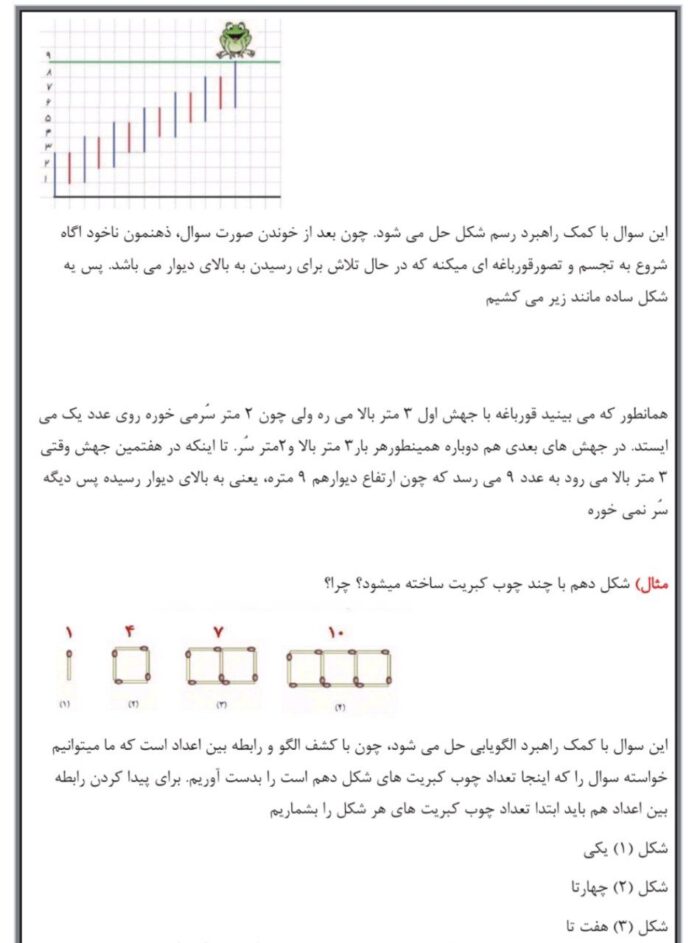 ۹
۸
۷
۶
۵
۴
۳
۲
۱
این سوال با کمک راهبرد رسم شکل حل می شود. چون بعد از خوندن صورت سوال، ذهنمون ناخود اگاه
شروع به تجسم و تصورقورباغه ای میکنه که در حال تلاش برای رسیدن به بالای دیوار می باشد. پس یه
شکل ساده مانند زیر می کشیم
همانطور که می بینید قورباغه با جهش اول ۳ متر بالا می ره ولی چون ۲ متر سُرمی خوره روی عدد یک می
ایستد. در جهش های بعدی هم دوباره همینطورهر بار۳ متر بالا و۲متر سُر. تا اینکه در هفتمین جهش وقتی
۳ متر بالا می رود به عدد ۹ می رسد که چون ارتفاع دیوارهم ۹ متره، یعنی به بالای دیوار رسیده پس دیگه
سُر نمی خوره
مثال) شکل دهم با چند چوب کبریت ساخته میشود؟ چرا؟
۱ ۴ ۷ ۱۰
(۱) (۲) (۳) (۴)
این سوال با کمک راهبرد الگویابی حل می شود، چون با کشف الگو و رابطه بین اعداد است که ما میتوانیم
خواسته سوال را که اینجا تعداد چوب کبریت های شکل دهم است را بدست آوریم. برای پیدا کردن رابطه
بین اعداد هم باید ابتدا تعداد چوب کبریت های هر شکل را بشماریم
شکل (۱) یکی
شکل (۲) چهارتا
شکل (۳) هفت تا